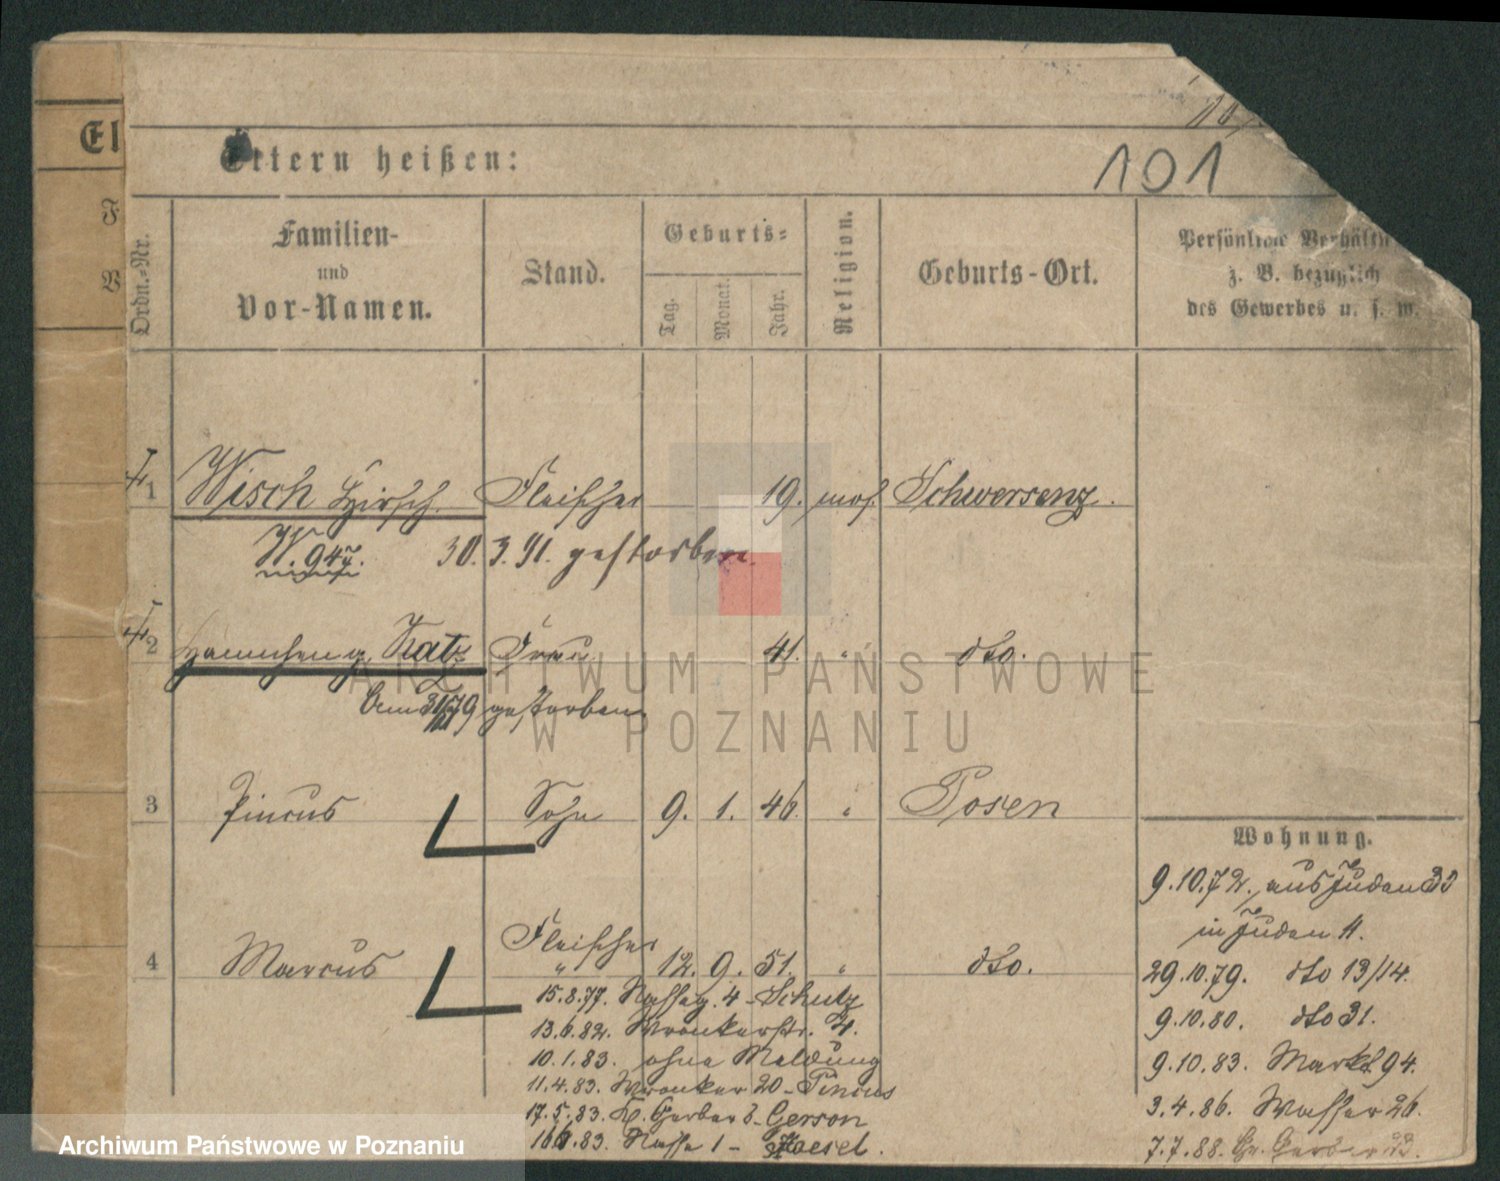 101
El
Eltern heißen:
Ordn.-Nr.
Familien-
und
Vor-Namen.
Stand.
Geburts-
Tag.
Monat.
Jahr.
Religion.
Geburts-Ort.
Persönliche Verhältn
z. B. bezüglich
des Gewerbes u. s. w.
1 Wisch Hirsch. Fleischer 19. mos. Schwersenz.
W. 947. 30. 3. 91. gestorben.
2 Hannchen g. Katz Frau 41. " dto.
gestorben
3 Pincus Sohn 9. 1. 46. " Posen
Wohnung.
9.10.72. aus Juden 33
in Juden 11.
4 Marcus Fleischer " 12. 9. 51. " dto.
29.10.79. dto 13/14.
9.10.80. dto 31.
9.10.83. Markt 94.
3.4.86. Wasser 26.
7.7.88. Gr. Gerber 23.
15.8.77. 4 - Schulz
13.6.82. Wronkerstr. 4.
10.1.83. ohne Meldung
11.4.83. Wronker 20 - Pincus
17.5.83. Kl. Gerber 8 - Gerson
83. Nasse 1 -
ARCHIWUM PAŃSTWOWE
W POZNANIU
Archiwum Państwowe w Poznaniu